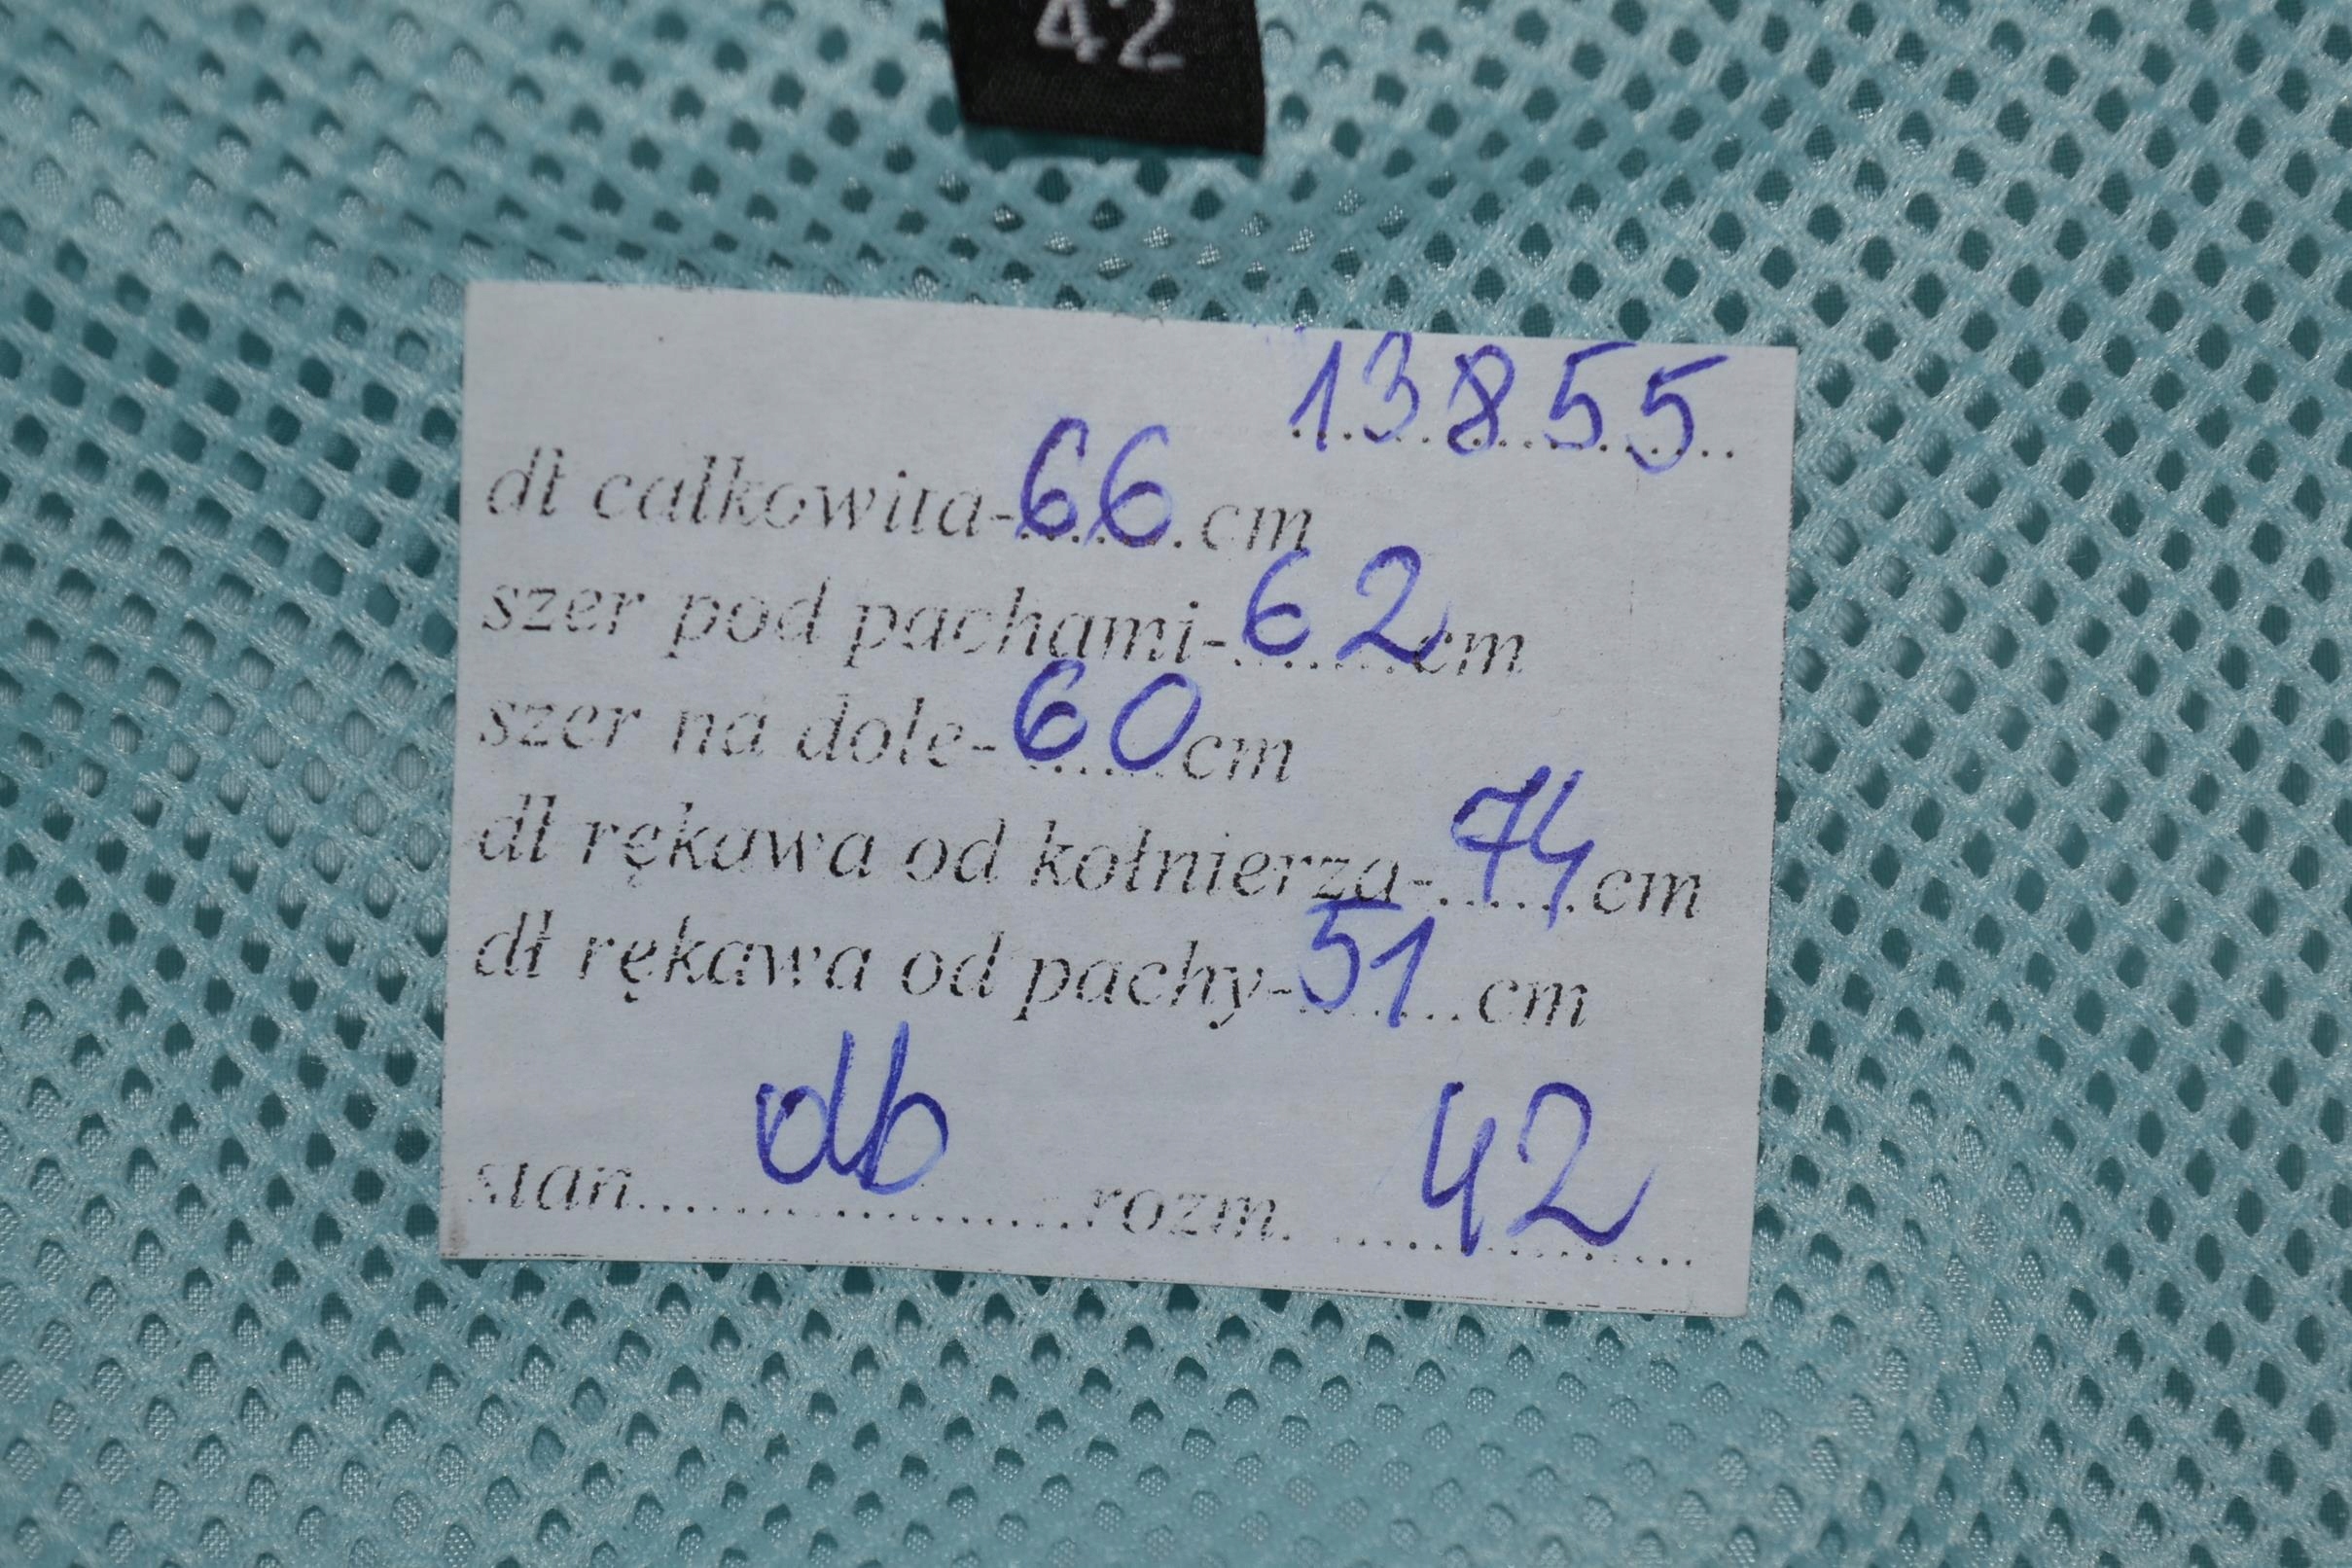 42
13855
dł całkowita-66.cm
szer pod pachami-62cm
szer na dole-60cm
dł rękawa od kołnierza-74cm
dł rękawa od pachy-51cm
stan db rozm. 42